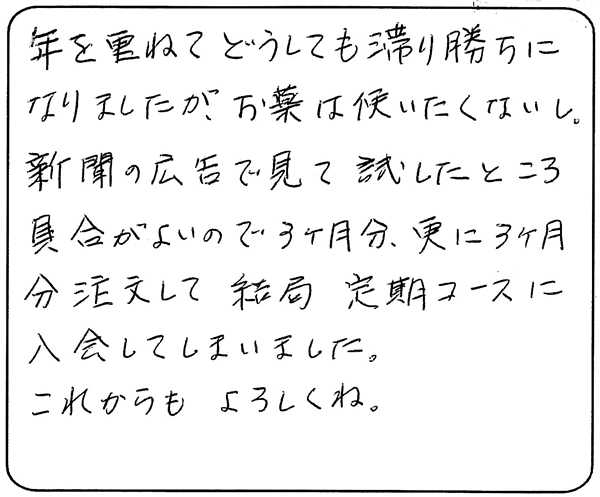 年を重ねてどうしても滞り勝ちに
なりましたが、お薬は使いたくないし。
新聞の広告で見て 試したところ
具合がよいので3ケ月分、更に3ケ月
分注文して 結局 定期コースに
入会してしまいました。
これからも よろしくね。